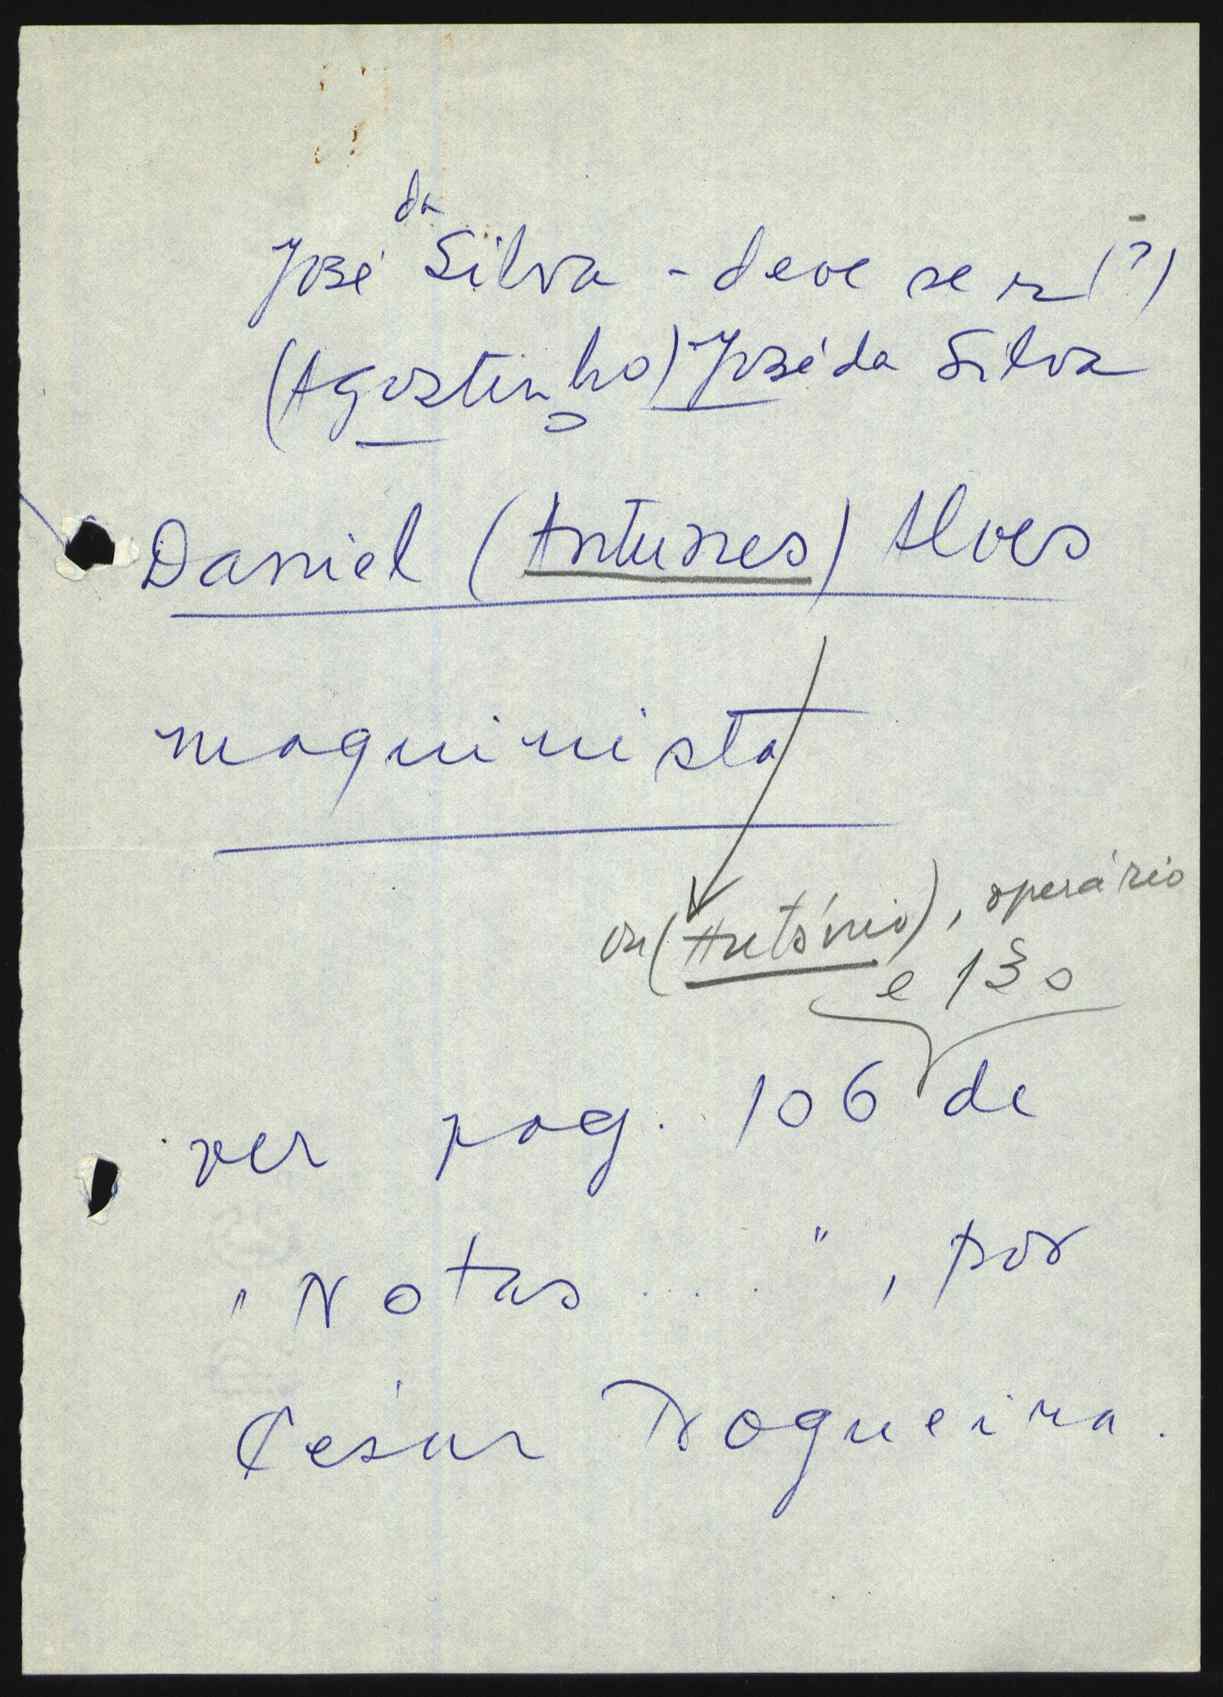 José da Silva - deve ser (?)
(Agostinho) José da Silva
Daniel (Antunes) Alves
maquinista
ou (António), operário
e 130
ver pag. 106 de
"Notas . . . . ", por
César Nogueira.